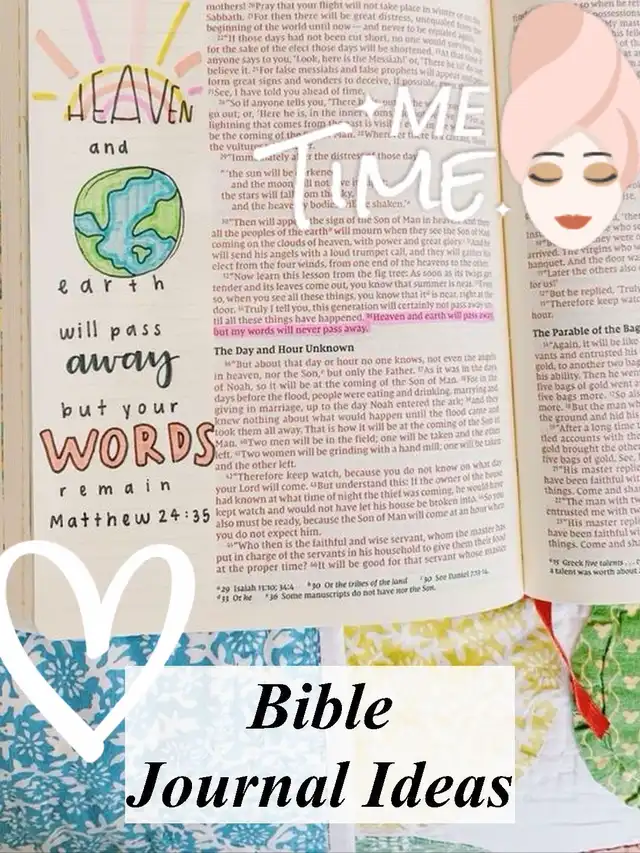 HEAVEN
and
earth
will pass
away
but your
WORDS
remain
Matthew 24:35
mothers! ²⁰Pray that your flight will not take place in winter or on the
Sabbath. ²¹For then there will be great distress, unequaled from the
beginning of the world until now—and never to be equaled again.
²²"If those days had not been cut short, no one would survive, but
for the sake of the elect those days will be shortened. ²³At that time if
anyone says to you, 'Look, here is the Messiah!' or, 'There he is!' do not
believe it. ²⁴For false messiahs and false prophets will appear and per-
form great signs and wonders to deceive, if possible, even the elect.
²⁵See, I have told you ahead of time.
²⁶"So if anyone tells you, 'There
go out; or, 'Here he is, in the inner rooms,'
lightning that comes from the east is visible
be the coming of the Son of Man. ²⁸Wherever there is a carcass, there
the vultures
²⁹"Immediately after the distress of those days
"'the sun will be darkened,
and the moon will not give its
the stars will fall from the sky,
and the heavenly bodies will be shaken.'
³⁰"Then will appear the sign of the Son of Man in heaven. And then
all the peoples of the earth will mourn when they see the Son of Man
coming on the clouds of heaven, with power and great glory. ³¹And he
will send his angels with a loud trumpet call, and they will gather his
elect from the four winds, from one end of the heavens to the other.
³²"Now learn this lesson from the fig tree: As soon as its twigs get
tender and its leaves come out, you know that summer is near. ³³Even
so, when you see all these things, you know that it is near, right at the
door. ³⁴Truly I tell you, this generation will certainly not pass away un-
til all these things have happened. ³⁵Heaven and earth will pass away,
but my words will never pass away.
The Day and Hour Unknown
³⁶"But about that day or hour no one knows, not even the angels
in heaven, nor the Son, but only the Father. ³⁷As it was in the days
of Noah, so it will be at the coming of the Son of Man. ³⁸For in the
days before the flood, people were eating and drinking, marrying and
giving in marriage, up to the day Noah entered the ark; ³⁹and they
knew nothing about what would happen until the flood came and
took them all away. That is how it will be at the coming of the Son of
Man. ⁴⁰Two men will be in the field; one will be taken and the other
left. ⁴¹Two women will be grinding with a hand mill; one will be taken
and the other left.
⁴²"Therefore keep watch, because you do not know on what day
your Lord will come. ⁴³But understand this: If the owner of the house
had known at what time of night the thief was coming, he would have
kept watch and would not have let his house be broken into. ⁴⁴So you
also must be ready, because the Son of Man will come at an hour when
you do not expect him.
⁴⁵"Who then is the faithful and wise servant, whom the master has
put in charge of the servants in his household to give them their food
at the proper time? ⁴⁶It will be good for that servant whose master
29 Isaiah 13:10; 34:4 30 Or the tribes of the land 30 See Daniel 7:13-14.
33 Or he 36 Some manuscripts do not have nor the Son.
ME
TIME.
arrived. The virgins who
banquet. And the door was
"Later the others also
for us!'
"But he replied, 'Truly
"Therefore keep watch
hour.
The Parable of the Bag
"Again, it will be like
vants and entrusted his
gold, to another two bag
his ability. Then he went
five bags of gold went
five bags more. So also
more. But the man who
the ground and hid his
"After a long time
tled accounts with them
gold brought the other
five bags of gold. See, I
"His master replied
have been faithful with
things. Come and share
"The man with two
entrusted me with two
"His master replied
have been faithful with
things. Come and share
15 Greek five talents
a talent was worth about
Bible
Journal Ideas